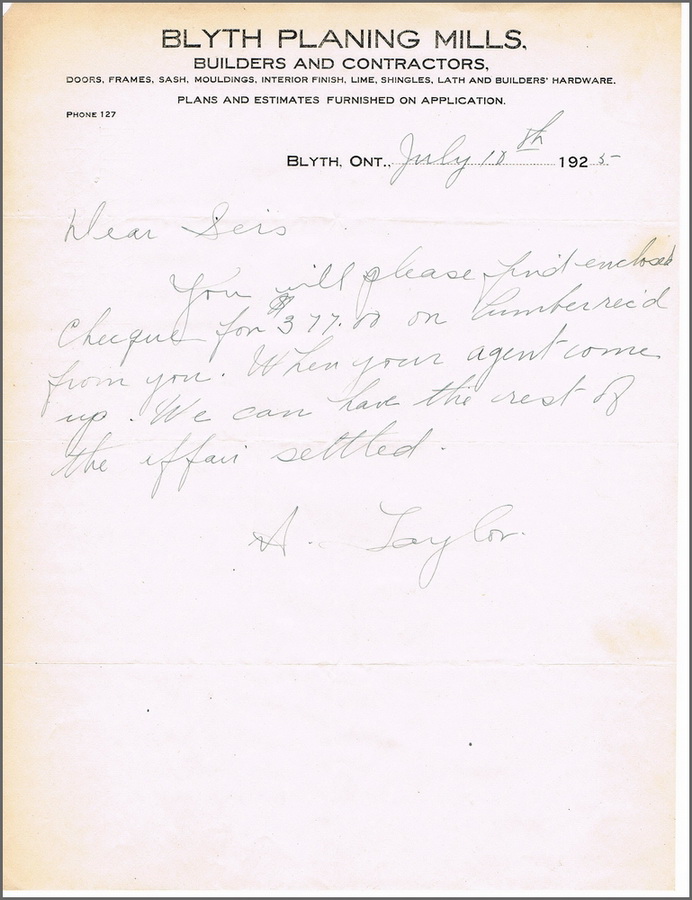 BLYTH PLANING MILLS,
BUILDERS AND CONTRACTORS,
DOORS, FRAMES, SASH, MOULDINGS, INTERIOR FINISH, LIME, SHINGLES, LATH AND BUILDERS' HARDWARE.
PLANS AND ESTIMATES FURNISHED ON APPLICATION.
PHONE 127
BLYTH, ONT., July 10th 1925
Dear Seis
You will please find enclosed
Cheque for $377.00 on lumber rec'd
from you. When your agent come
up. We can have the rest of
the affair settled.
A. Taylor.